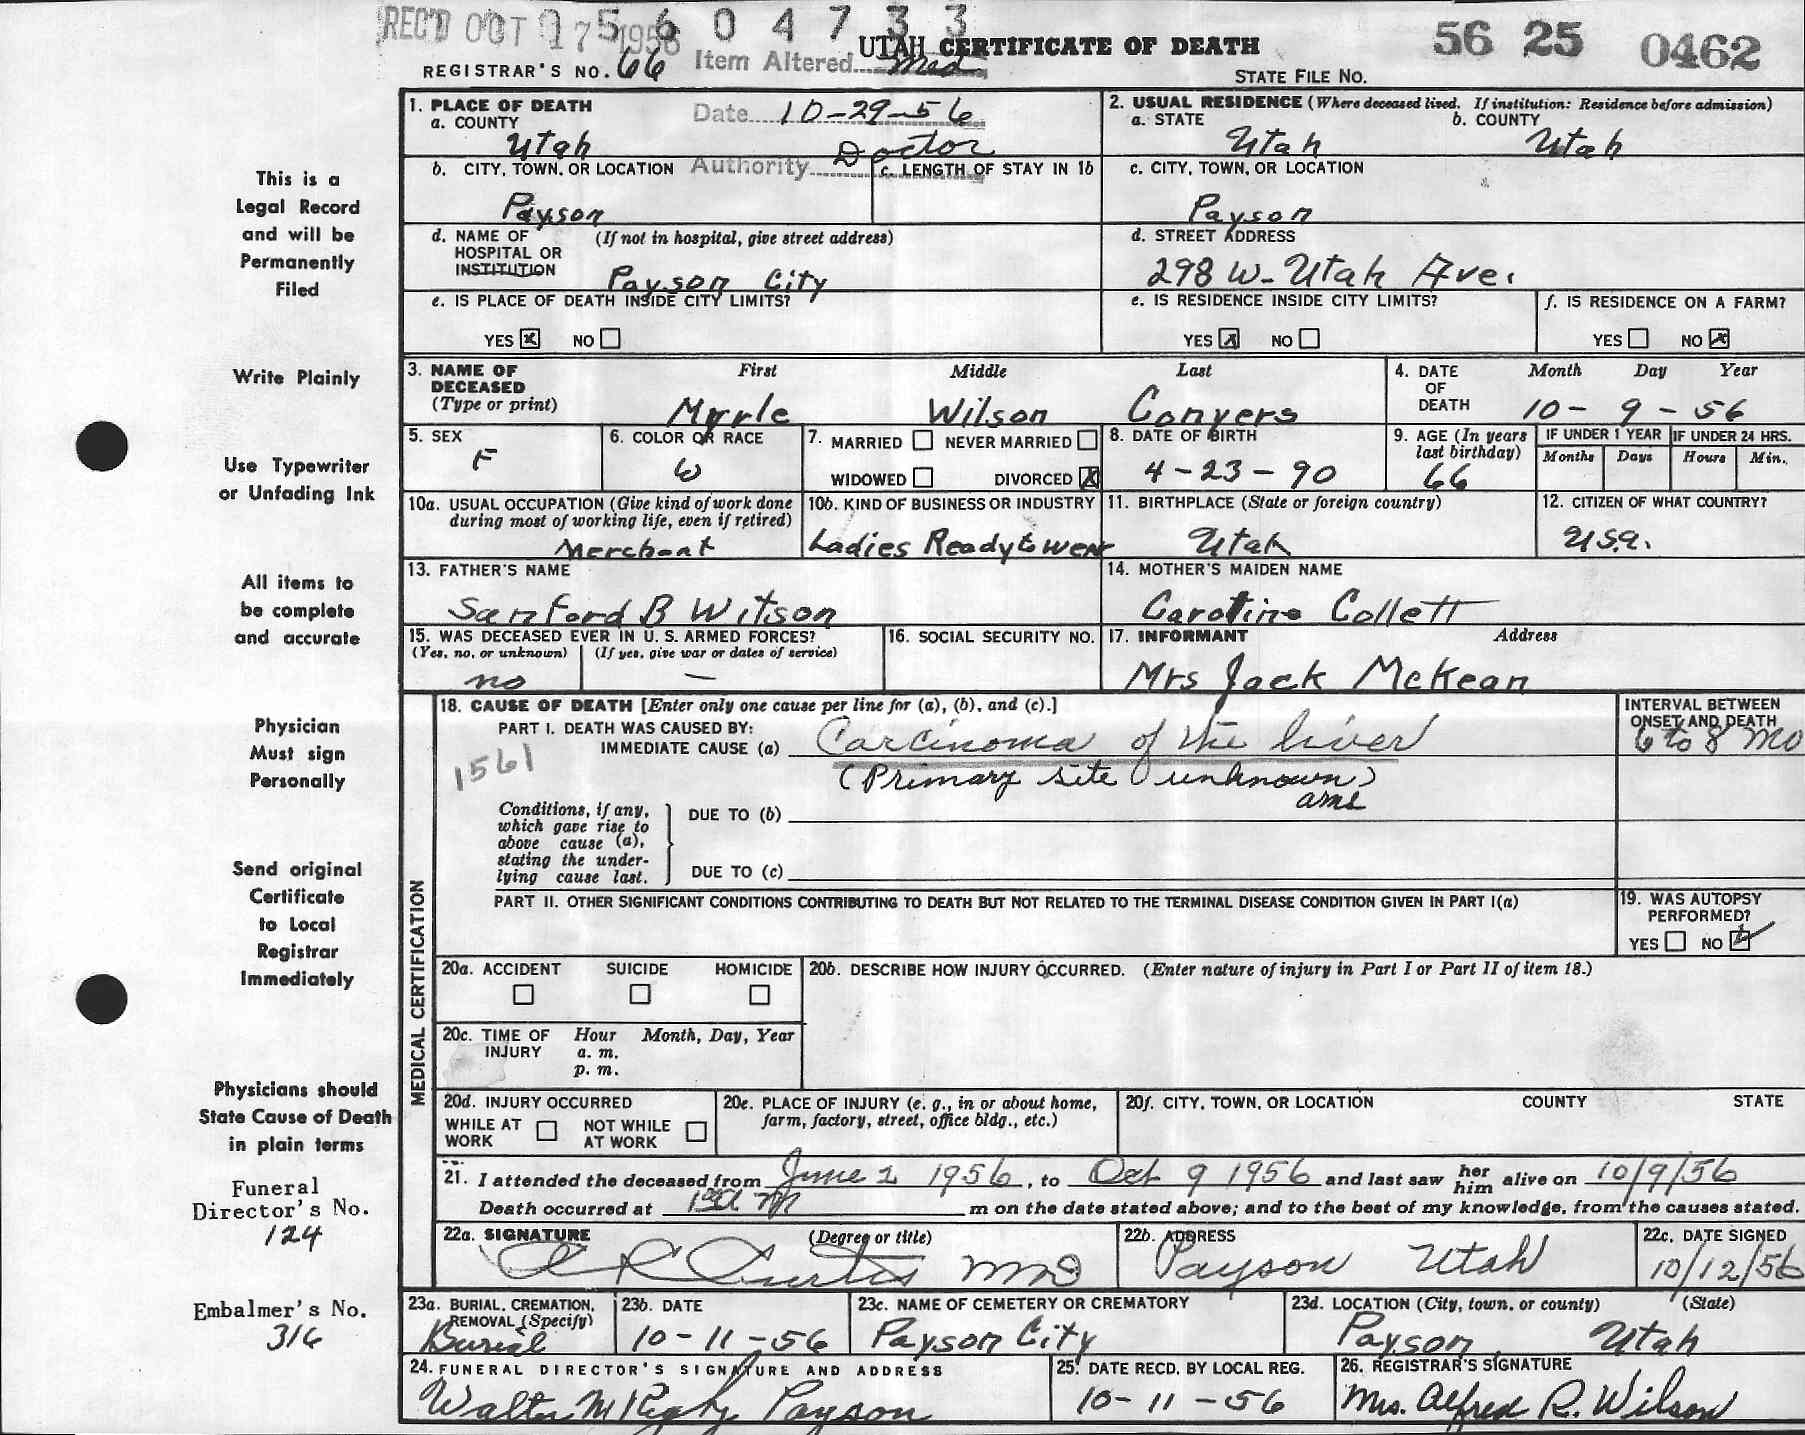 REC'D OCT 17 1956
5 6 0 4 7 3 3
UTAH CERTIFICATE OF DEATH
56 25 0462
REGISTRAR'S NO. 66
Item Altered Med
STATE FILE NO.
Date 10-29-56
Authority Doctor
1. PLACE OF DEATH
a. COUNTY
Utah
2. USUAL RESIDENCE (Where deceased lived. If institution: Residence before admission)
a. STATE b. COUNTY
Utah Utah
b. CITY, TOWN, OR LOCATION
Payson
c. LENGTH OF STAY IN 1b
c. CITY, TOWN, OR LOCATION
Payson
d. NAME OF (If not in hospital, give street address)
HOSPITAL OR
INSTITUTION
Payson City
d. STREET ADDRESS
298 W. Utah Ave.
e. IS PLACE OF DEATH INSIDE CITY LIMITS?
YES X NO
e. IS RESIDENCE INSIDE CITY LIMITS?
YES X NO
f. IS RESIDENCE ON A FARM?
YES NO X
3. NAME OF DECEASED
(Type or print)
First Middle Last
Myrle Wilson Conyers
4. DATE OF DEATH
Month Day Year
10 - 9 - 56
5. SEX
F
6. COLOR OR RACE
W
7. MARRIED NEVER MARRIED
WIDOWED DIVORCED X
8. DATE OF BIRTH
4-23-90
9. AGE (In years last birthday)
66
IF UNDER 1 YEAR
Months Days
IF UNDER 24 HRS.
Hours Min.
10a. USUAL OCCUPATION (Give kind of work done
during most of working life, even if retired)
Merchant
10b. KIND OF BUSINESS OR INDUSTRY
Ladies Ready to wear
11. BIRTHPLACE (State or foreign country)
Utah
12. CITIZEN OF WHAT COUNTRY?
U.S.A.
13. FATHER'S NAME
Sanford B Wilson
14. MOTHER'S MAIDEN NAME
Caroline Collett
15. WAS DECEASED EVER IN U.S. ARMED FORCES?
(Yes, no, or unknown) (If yes, give war or dates of service)
no —
16. SOCIAL SECURITY NO.
17. INFORMANT Address
Mrs Jack McKean
MEDICAL CERTIFICATION
18. CAUSE OF DEATH [Enter only one cause per line for (a), (b), and (c).]
PART I. DEATH WAS CAUSED BY:
IMMEDIATE CAUSE (a) Carcinoma of the liver
1561
(Primary site unknown)
ams
INTERVAL BETWEEN
ONSET AND DEATH
6 to 8 mo
Conditions, if any,
which gave rise to
above cause (a),
stating the under-
lying cause last.
DUE TO (b)
DUE TO (c)
PART II. OTHER SIGNIFICANT CONDITIONS CONTRIBUTING TO DEATH BUT NOT RELATED TO THE TERMINAL DISEASE CONDITION GIVEN IN PART I(a)
19. WAS AUTOPSY
PERFORMED?
YES NO
20a. ACCIDENT SUICIDE HOMICIDE
20b. DESCRIBE HOW INJURY OCCURRED. (Enter nature of injury in Part I or Part II of item 18.)
20c. TIME OF INJURY
Hour Month, Day, Year
a. m.
p. m.
20d. INJURY OCCURRED
WHILE AT WORK NOT WHILE AT WORK
20e. PLACE OF INJURY (e. g., in or about home,
farm, factory, street, office bldg., etc.)
20f. CITY, TOWN, OR LOCATION COUNTY STATE
21. I attended the deceased from June 2 1956, to Oct 9 1956 and last saw her him alive on 10/9/56
Death occurred at m on the date stated above; and to the best of my knowledge, from the causes stated.
22a. SIGNATURE (Degree or title)
Curtis MD
22b. ADDRESS
Payson Utah
22c. DATE SIGNED
10/12/56
23a. BURIAL, CREMATION,
REMOVAL (Specify)
Burial
23b. DATE
10-11-56
23c. NAME OF CEMETERY OR CREMATORY
Payson City
23d. LOCATION (City, town, or county) (State)
Payson Utah
24. FUNERAL DIRECTOR'S SIGNATURE AND ADDRESS
Walter Payson
25. DATE RECD. BY LOCAL REG.
10-11-56
26. REGISTRAR'S SIGNATURE
Mrs. Alfred R. Wilson
This is a
Legal Record
and will be
Permanently
Filed
Write Plainly
Use Typewriter
or Unfading Ink
All items to
be complete
and accurate
Physician
Must sign
Personally
Send original
Certificate
to Local
Registrar
Immediately
Physicians should
State Cause of Death
in plain terms
Funeral
Director's No.
124
Embalmer's No.
316